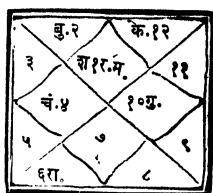 बु. २ के. १२
३ श १ र. मं. ११
चं. ४ १० गु.
५ ७ ९
६ रा. ८